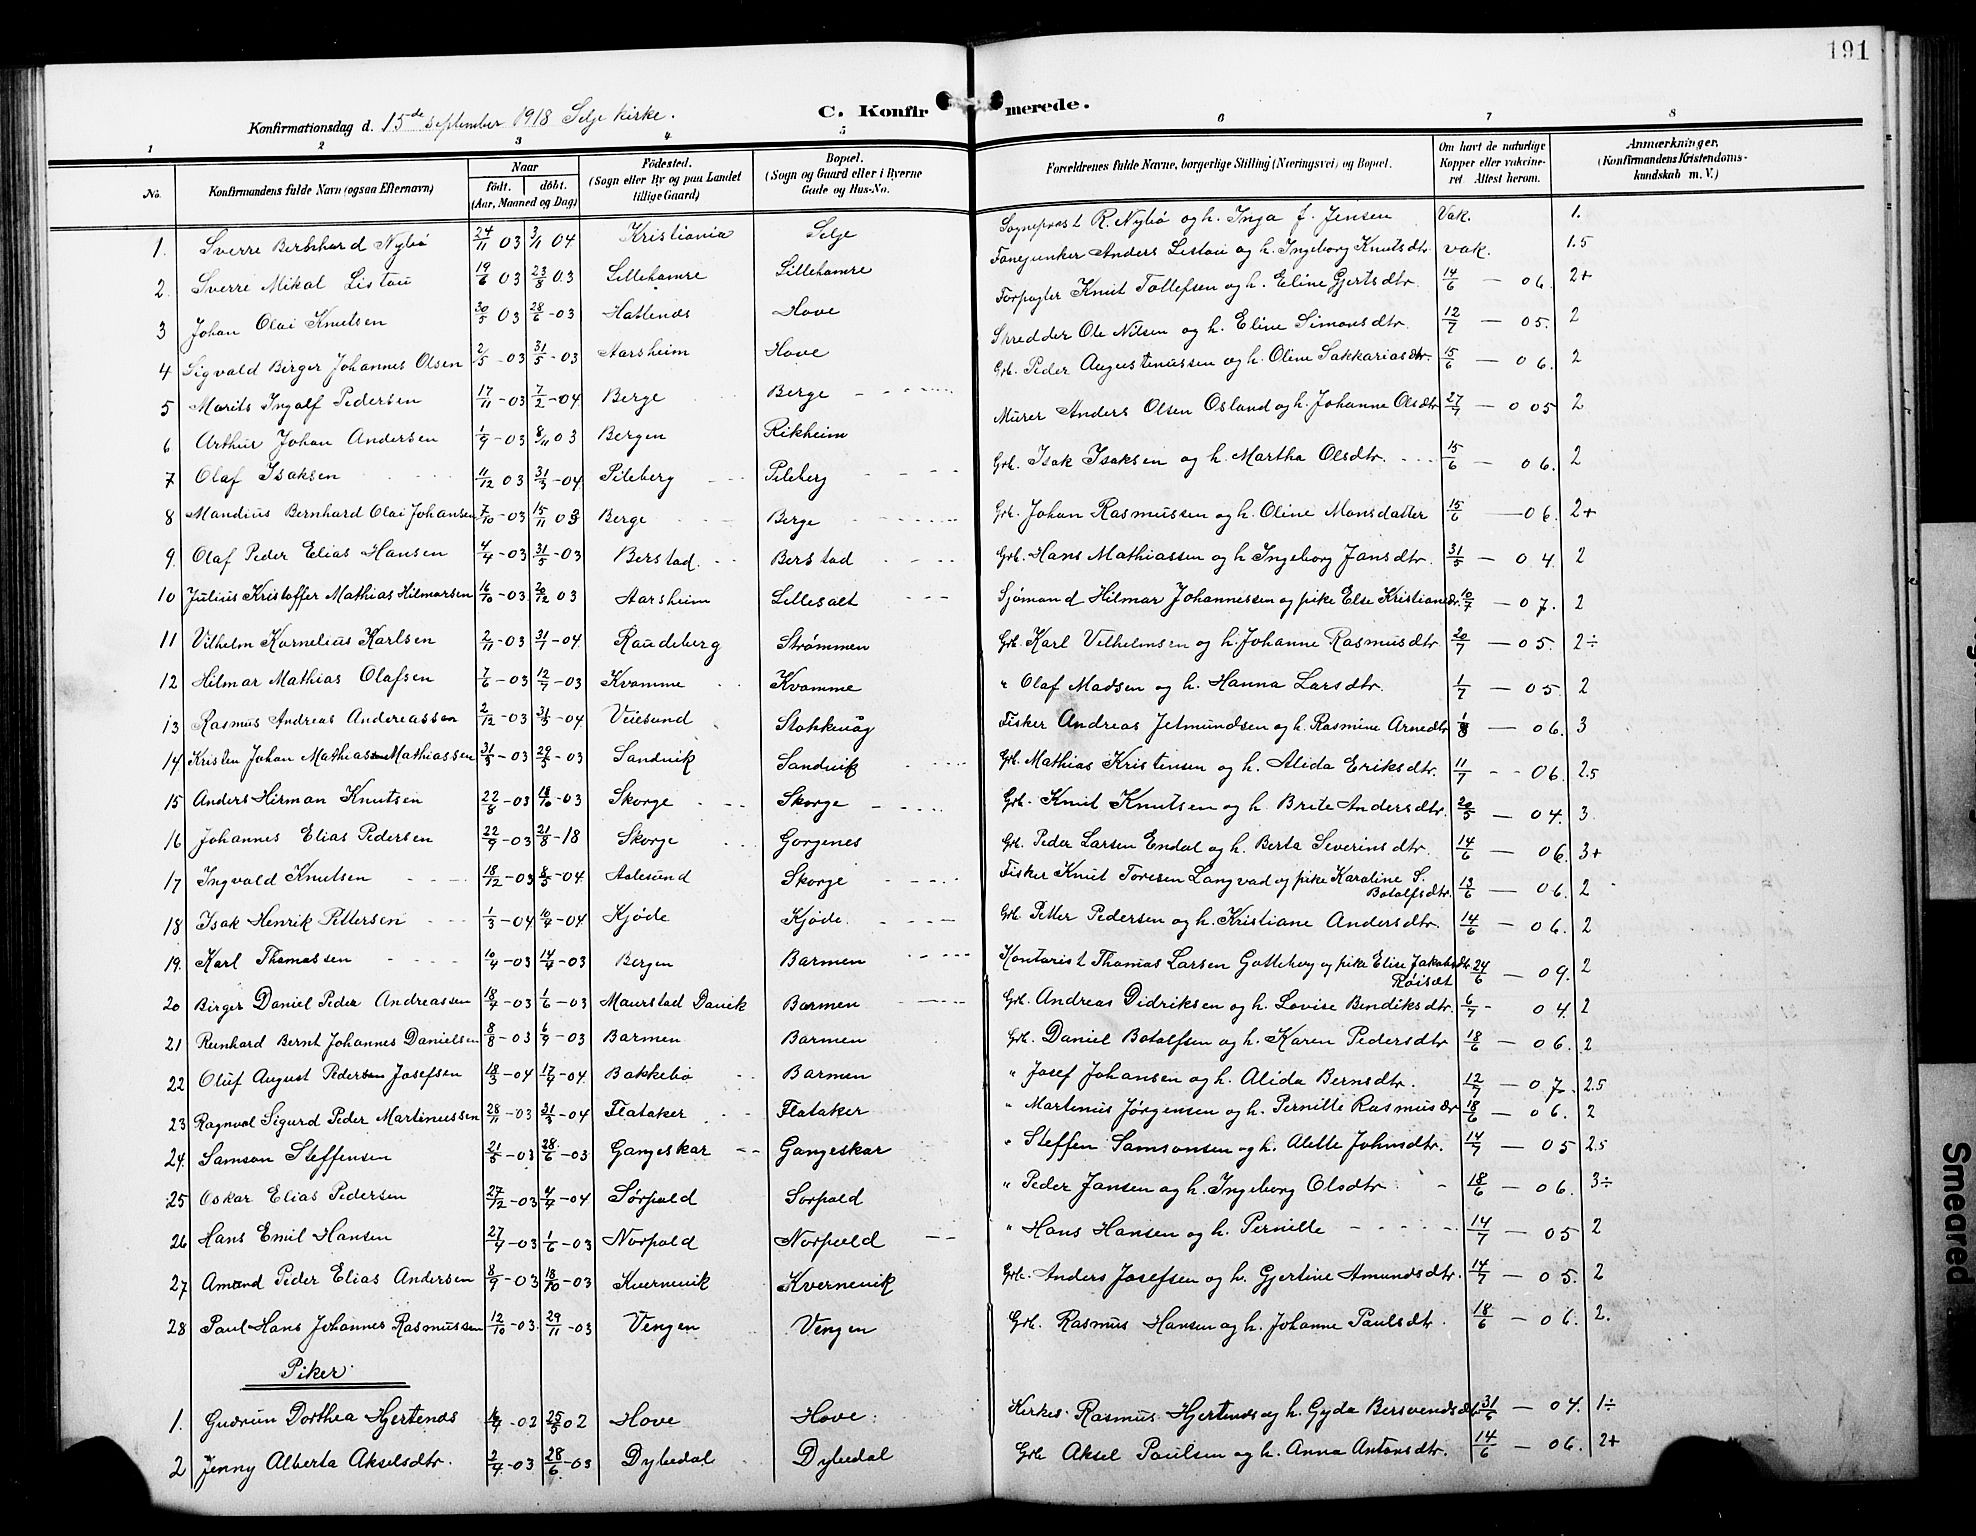 191
C. Konfirmerede.
Konfirmationsdag d. 15de september 1918 Selje kirke.
1 2 3 4 5 6 7 8
No. Konfirmandens fulde Navn (ogsaa Efternavn) Naar født. døbt. (Aar, Maaned og Dag) Fødested. (Sogn eller By og paa Landet tillige Gaard) Bopæl. (Sogn og Gaard eller i Byerne Gade og Hus-No. Forældrenes fulde Navne, borgerlige Stilling (Næringsvei) og Bopæl. Om havt de naturlige Kopper eller vakcineret Attest herom. Anmærkninger. (Konfirmandens Kristendomskundskab m. V.)
1. Sverre Bernhard Nybø 24/11 03 3/1 04 Kristiania Selje Sogneprest R. Nybø og h. Inga f. Jensen Vak. 1.
2. Sverre Mikal Listau 19/6 03 23/8 03 Lillehamre Lillehamre Fanejunker Anders Listau og h. Ingeborg Knutsdtr vak. 1.5
3 Johan Olai Knutsen 30/5 03 28/6 -03 Hatlenes Hove Forpagter Knut Tollefsen og h. Eline Gjertsdtr. 14/6 - 06. 2+
4 Sigvald Birger Johannes Olsen 2/5 -03 31/5 -03 Aarsheim Hove Skredder Ole Nilsen og h. Eline Simonsdtr. 12/7 - 05. 2
5 Morits Ingolf Pedersen 17/11 -03 7/2 -04 Berge Berge Grb. Peder Augustinussen og h. Oline Sakkariasdtr. 15/6 - 06. 2
6 Arthur Johan Andersen 1/9 -03 8/11 03 Bergen Rikheim Murer Anders Olsen Osland og h. Johanne Olsdtr 27/7 - 005 2
7 Olaf Isaksen 11/12 03 31/3 -04 Pileberg Pileberg Grb. Isak Isaksen og h. Martha Olsdtr. 15/6 - 06. 2
8 Mandius Bernhard Olai Johansen 7/10 -03 15/11 03 Berge Berge Grb. Johan Rasmussen og h. Oline Monsdatter 15/6 - 06. 2+
9. Olaf Peder Elias Hansen 4/4 -03 31/5 -03 Berstad Berstad Grb. Hans Mathiassen og h Ingeborg Jansdtr. 31/5 - 04. 2
10 Julius Kristoffer Mathias Hilmarsen 16/10 -03 20/12 03 Aarsheim Lillesalt Sjømand Hilmar Johannessen og pike Else Kristiansdtr. 10/7 - 07. 2
11 Vilhelm Kornelius Karlsen 2/11 -03 31/1 -04 Raudeberg Strømmen Grb. Karl Vilhelmsen og h. Johanne Rasmusdtr 20/7 - 05. 2÷
12 Hilmar Mathias Olafsen 7/6 -03 12/7 -03 Kvamme Kvamme " Olaf Madsen og h. Hanna Larsdtr. 1/7 - 05. 2
13 Rasmus Andreas Andereassen 2/12 -03 31/3 -04 Veiesund Stokkevåg Fisker Andreas Jetmundsen og h. Rasmine Arnedtr 1/8 - 06. 3
14 Kristen Johan Mathiassen Mathiassen 31/3 -03 29/3 -03 Sandvik Sandvik Grb. Mathias Kristensen og h. Alida Eriksdtr. 11/7 - 06. 2.5
15 Anders Hirman Knutsen 22/8 -03 18/10 -03 Skorge Skorge Grb. Knut Knutsen og h. Brite Andersdtr. 20/5 - 04. 3.
16 Johannes Elias Pedersen 22/9 -03 21/8 -18 Skorge Gorgenes Grb. Peder Larsen Endal og h. Berta Severinsdtr. 14/6 - 06. 3+
17 Ingvald Knutsen 18/12 -03 8/5 -04 Aalesund Skorge Fisker Knut Toresen Langvad og pike Karoline S. Botolfsdtr. 13/6 - 06. 2
18 Isak Henrik Pettersen 1/3 -04 10/4 -04 Kjøde Kjøde. Grb. Petter Pedersen og h. Kristiane Andersdtr. 14/6 - 06. 2
19. Karl Thomassen 10/4 -03 14/4 -03 Bergen Barmen Kontorist Thomas Larsen Gotteberg og pike Elise Jakobsdtr. Røisæt 24/6 - 09. 2
20 Birger Daniel Peder Andreassen 18/4 -03 1/6 -03 Maurstad Davik Barmen Grb. Andreas Didriksen og h. Lovise Bendiksdtr. 6/7 - 04. 2
21 Reinhard Bernt Johannes Danielsen 8/8 -03 6/9 -03 Barmen Barmen Grb. Daniel Botolfsen og h. Karen Pedersdtr 18/6 - 06. 2
22 Oluf August Pedersen Josefsen 18/3 -04 17/4 -04. Bakkebø Barmen " Josef Johansen og h. Alida Bernsdtr. 12/7 - 07. 2.5
23 Ragnval Sigurd Peder Martinussen 28/11 -03 31/3 -04 Flataker Flataker " Martinus Jørgensen og h. Pernille Rasmusdtr 18/6 - 06. 2
24. Samson Steffensen 21/5 -03 28/6 -03 Gangeskar Gangeskar " Steffen Samsonsen og h. Alette Johnsdtr. 14/7 - 05 2.5
25 Oskar Elias Pedersen 27/12 -03 4/4 -04 Sørpold Sørpold " Peder Jansen og h. Ingeborg Olsdtr 18/6 - 06. 3÷
26 Hans Emil Hansen 27/4 -03 1/6 -03 Norpold Norpold " Hans Hansen og h. Pernille 14/7 - 05 2
27 Amund Peder Elias Andersen 8/9 -03 18/10 -03 Kvernevik Kvernevik Grb. Anders Josefsen og h. Gjertine Amundsdtr. 14/7 - 05. 2
28 Paul Hans Johannes Rasmussen 12/10 -03. 29/11 -03 Vengen Vengen Grb. Rasmus Hansen og h. Johanne Paulsdtr. 18/6 - 06. 2.
Piker
1. Gudrun Dorthea Hjertenæs -02 25/5 02 Hove Hove Kirkes. Rasmus Hjertenæs og h. Gyda Bersvendsdtr. 31/6 - 04. 1÷
2 Jenny Alberta Akselsdtr. 2/4 -03 28/6 -03 Dybedal Dybedal Grb Aksel Paulsen og h. Anna Antonsdtr. 14/6 - 06. 2+
Smeared